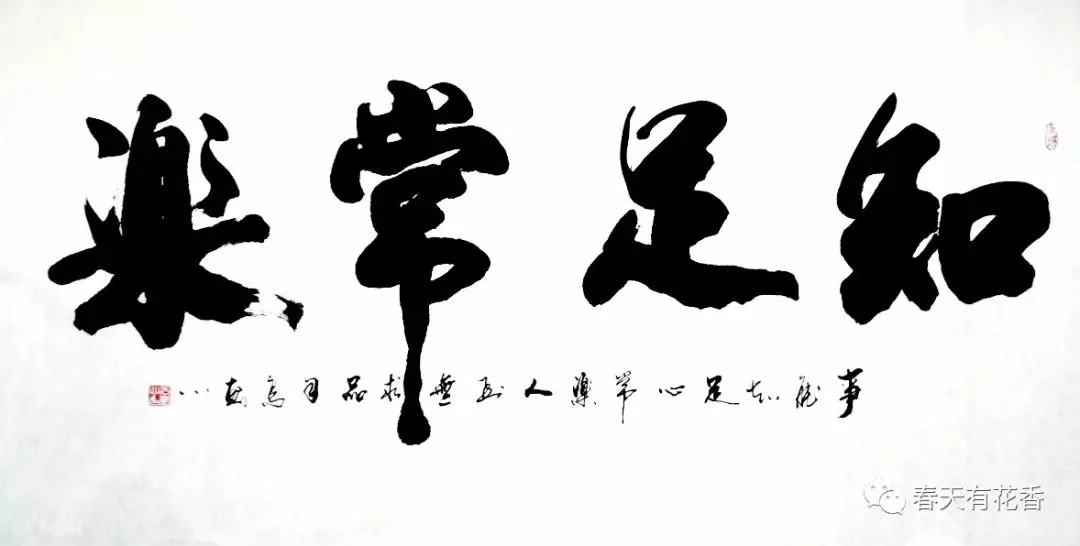 知足常樂
事能知足心常樂人到無求品自高
春天有花香